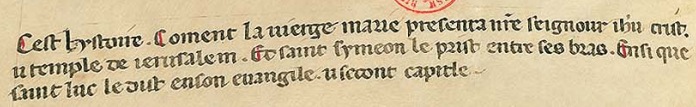 Cest hystoire. Coment la uierge marie presenta nr̄e seignour ihū crist.
u temple de ierusalem. Et saint symeon le prist entre ses bras. Ensi que
saint luc le dist en son euangile. u secont capitle